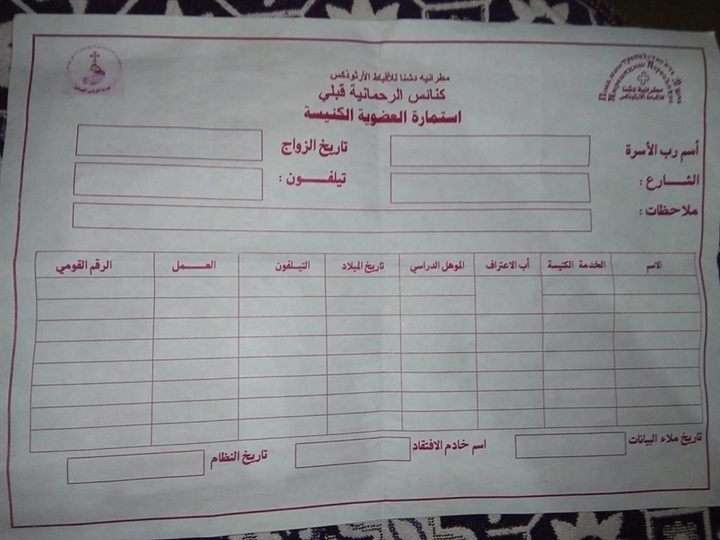 مطرانيه دشنا للأقباط الأرثوذكس
كنائس الرحمانية قبلي
استمارة العضوية الكنيسة
مطرانية دشنا
للأقباط الأرثوذكس
أسم رب الأسرة
تاريخ الزواج
الشارع :
تيلفون :
ملاحظات :
الاسم الخدمة الكنيسة أب الاعتراف الموهل الدراسي تاريخ الميلاد التيلفون العمل الرقم القومي
تاريخ ملاء البيانات
اسم خادم الافتقاد
تاريخ النظام